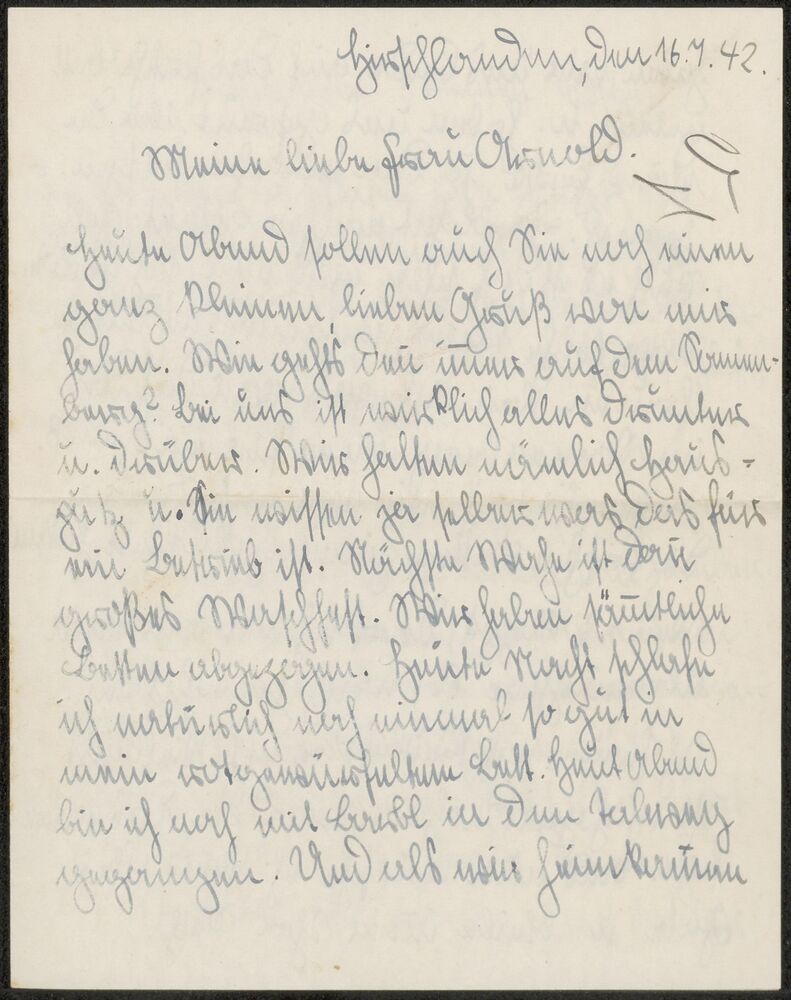 Hirschlanden, den 16.7.42.
Meine liebe Frau Arnold.
Heute Abend sollen auch Sie noch einen
ganz kleinen, lieben Gruß von mir
haben. Wie gehts den immer auf dem Sonnen-
berg? Bei uns ist wirklich alles drunter
u. drüber. Wir halten nämlich Haus-
putz u. Sie wissen ja selber was das für
ein Betrieb ist. Nächste Woche ist dan̅
großes Waschfest. Wir haben sämtliche
Betten abgezogen. Heute Nacht schlafe
ich natürlich noch einmal so gut in
mein rotgewürfelten Bett. Heut Abend
bin ich noch mit Bärbl in den Talweg
gegangen. Und als wir heimkamen